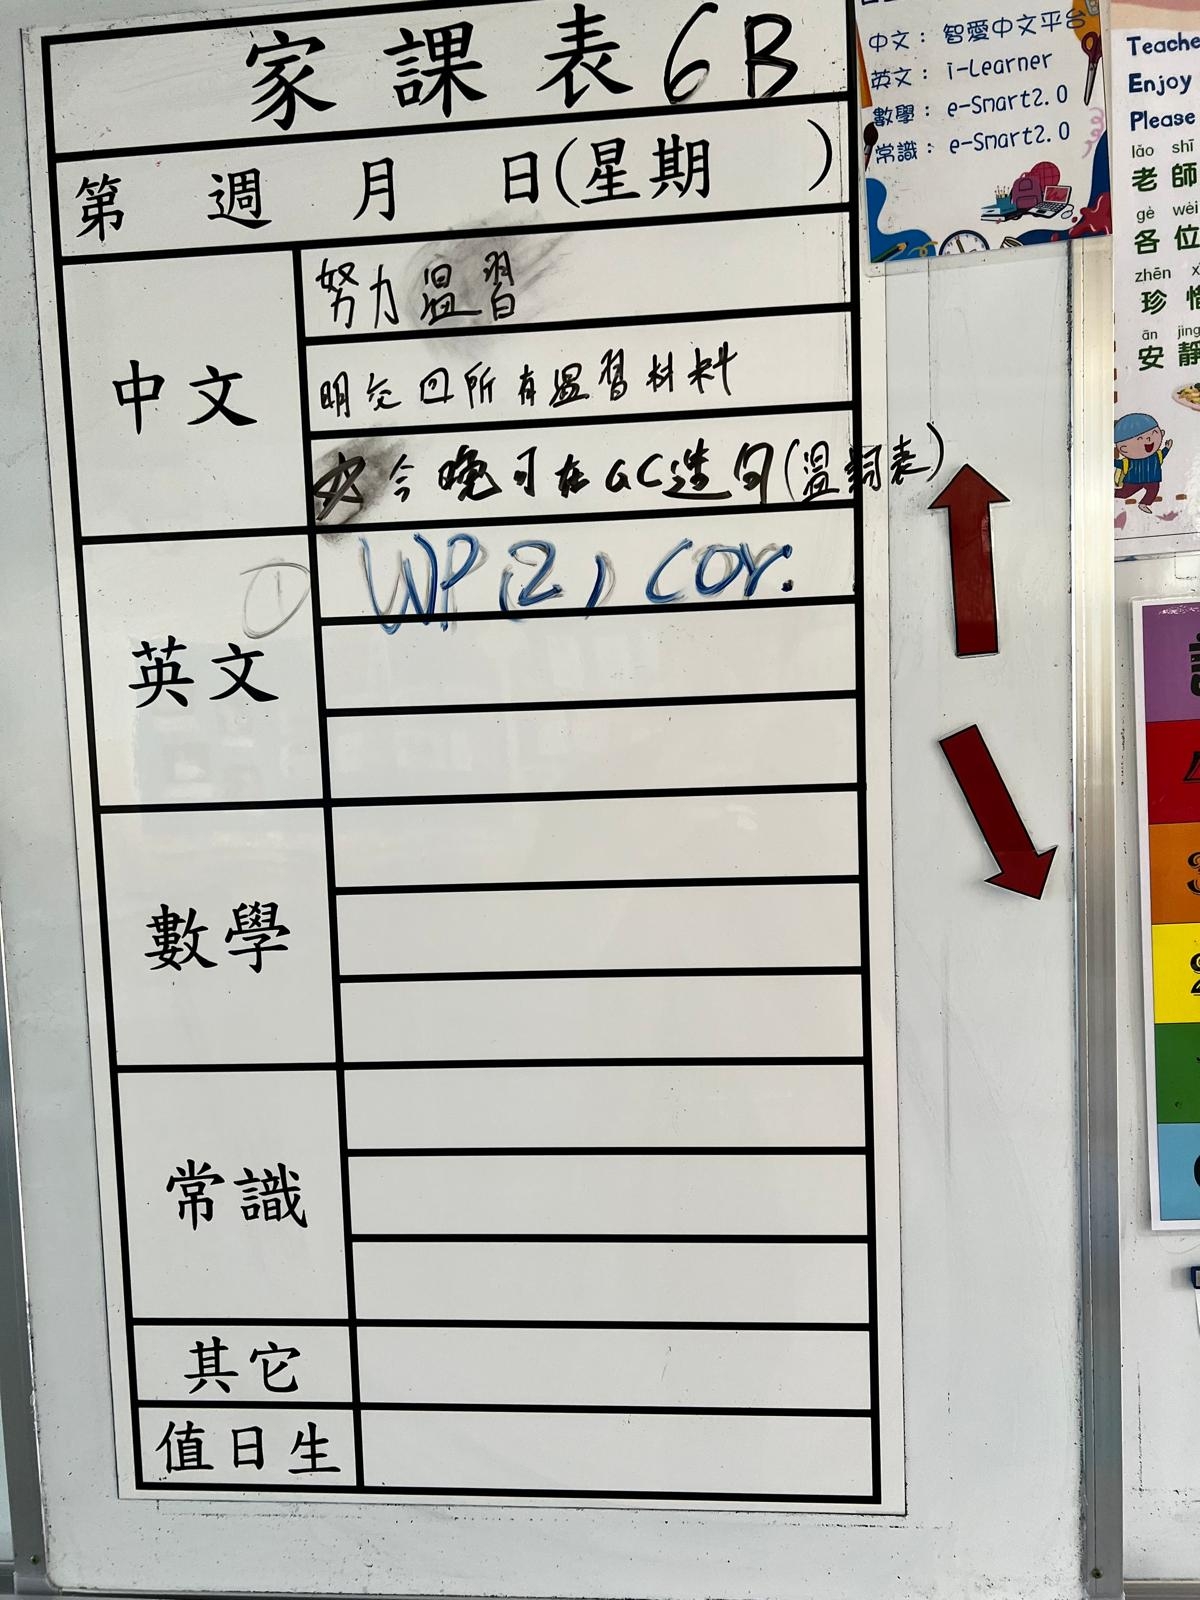 家課表6B
第 週 月 日(星期 )
中文
努力溫習
明交回所有溫習材料
今晚可在GC造句(溫詞表)
英文
WP(2) cor.
數學
常識
其它
值日生
中文：智愛中文平台
英文：i-Learner
數學：e-Smart2.0
常識：e-Smart2.0
Teache
Enjoy
Please
lǎo shī
老師
gè wèi
各位
zhēn
珍惜
ān jìng
安靜